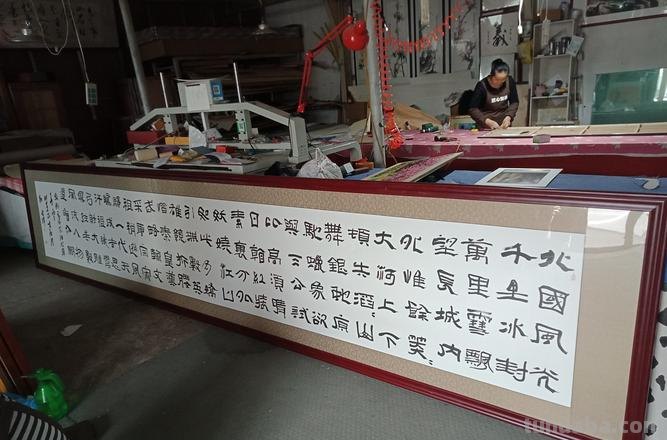 北國風光
千里冰封
萬里雪飄
望長城內
外惟餘莽〻
大河上下
頓失滔〻山
舞銀蛇原
馳蠟象欲
與天公試
比高須晴
日看紅裝
素裹分外
妖嬈江山
如此多嬌
引無數英
雄競折腰
惜秦皇漢
武略輸文
采唐宗宋
祖稍遜風
騷一代天
驕成吉思
汗只識彎
弓射大雕
俱往矣數
風流人物
還看今朝